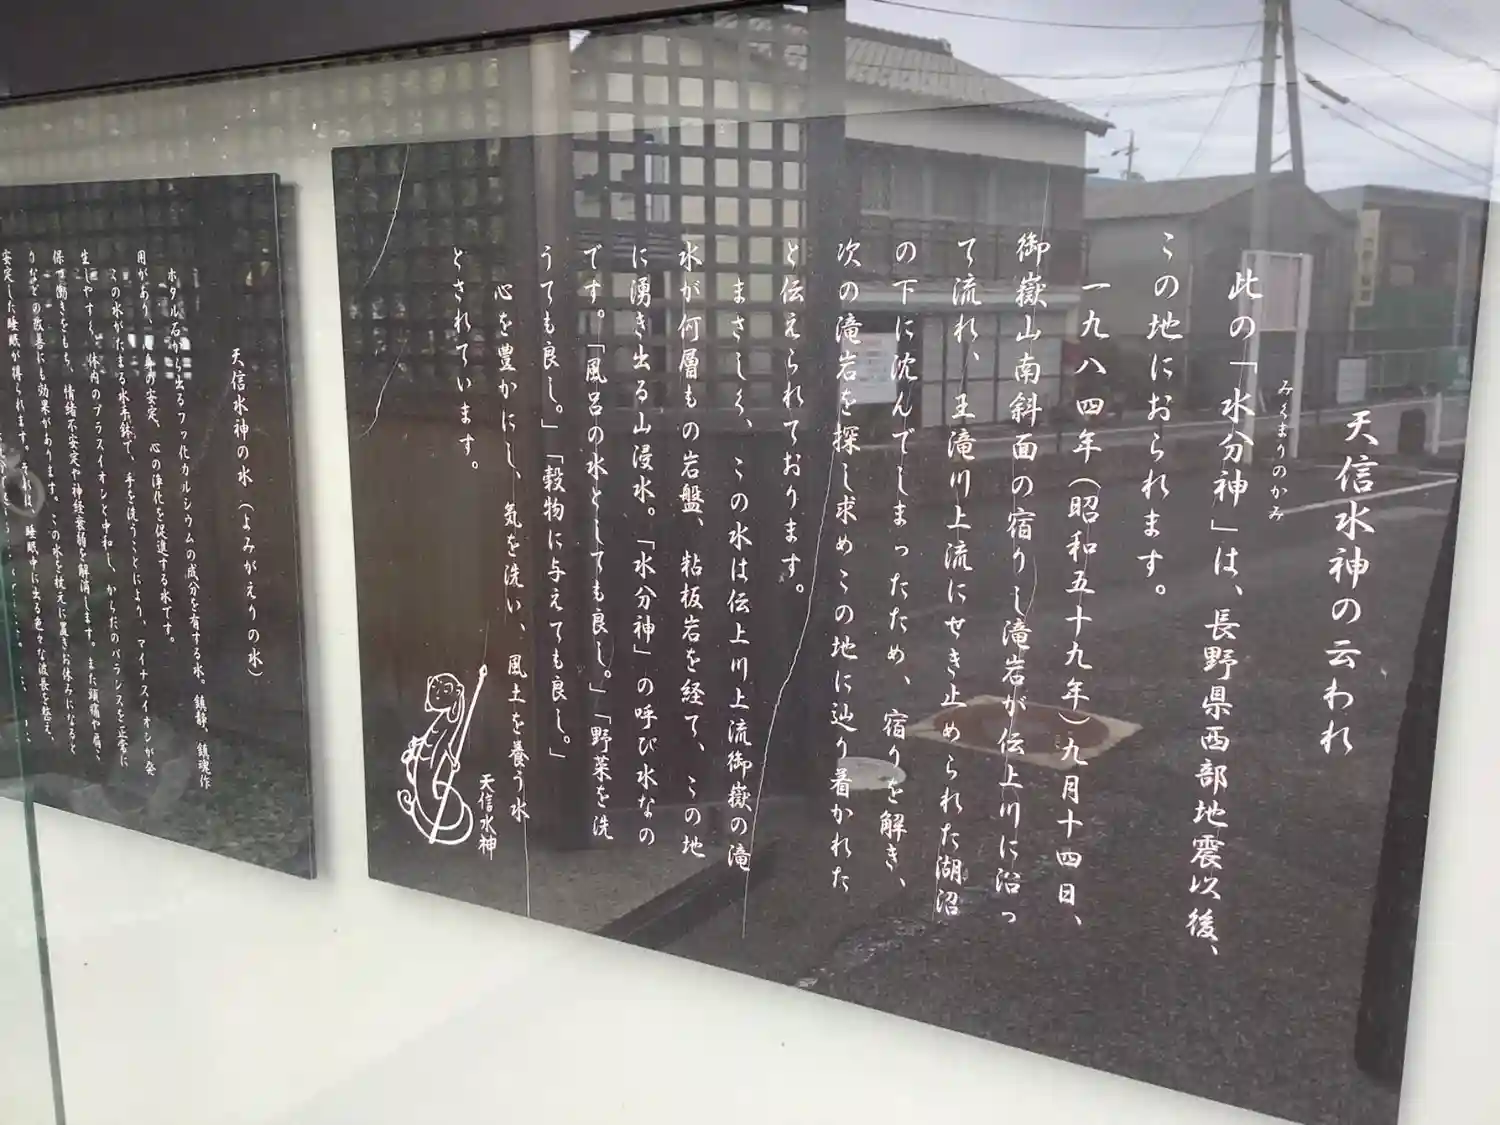 天信水神の云われ
此の「水分神」は、長野県西部地震以後、
みくまりのかみ
この地におられます。
一九八四年(昭和五十九年)九月十四日、
御嶽山南斜面の宿りし滝岩が伝上川に沿っ
て流れ、王滝川上流にせき止められた湖沼
の下に沈んでしまったため、宿りを解き、
次の滝岩を探し求めこの地に辿り着かれた
と伝えられております。
まさしく、この水は伝上川上流御嶽の滝
水が何層もの岩盤、粘板岩を経て、この地
に湧き出る山浸水。「水分神」の呼び水なの
です。「風呂の水としても良し。」「野菜を洗
うても良し。」「穀物に与えても良し。」
心を豊かにし、気を洗い、風土を養う水
とされています。
天信水神
天信水神の水(よみがえりの水)
ホタル石から出るフッ化カルシウムの成分を有する水。鎮静、鎮魂作
用があり、身の安定、心の浄化を促進する水です。
この水がたまる水手鉢で、手を洗うことにより、マイナスイオンが発
生しやすく、体内のプラスイオンと中和し、からだのバランスを正常に
保つ働きをもち、情緒不安定や神経衰弱を解消します。また頭痛や肩こ
りなどの改善にも効果があります。この水を枕元に置きお休みになると
安定した睡眠が得られます。それは、睡眠中に出る色々な波長を整え、